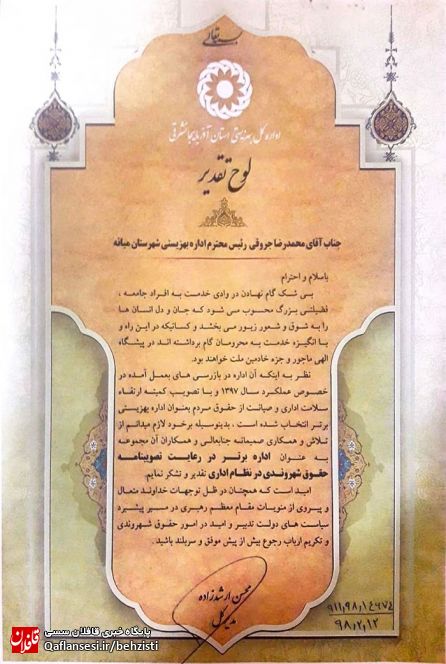 بسمه تعالی
اداره کل بهزیستی استان آذربایجان شرقی
لوح تقدیر
جناب آقای محمدرضا جروقی رئیس محترم اداره بهزیستی شهرستان میانه
باسلام و احترام
بی شک گام نهادن در وادی خدمت به افراد جامعه ،
فضیلتی بزرگ محسوب می شود که جان و دل انسان ها
را به شوق و شعور زیور می بخشد و کسانیکه در این راه و
با انگیزه خدمت به محرومان گام برداشته اند در پیشگاه
الهی ماجور و جزء خادمین ملت خواهند بود.
نظر به اینکه آن اداره در بازرسی های بعمل آمده در
خصوص عملکرد سال ۱۳۹۷ و با تصویب کمیته ارتقاء
سلامت اداری و صیانت از حقوق مردم بعنوان اداره بهزیستی
برتر انتخاب شده است ، بدینوسیله برخود لازم میدانم از
تلاش و همکاری صمیمانه جنابعالی و همکاران آن مجموعه
به عنوان اداره برتر در رعایت تصویبنامه
حقوق شهروندی در نظام اداری تقدیر و تشکر نمایم.
امید است که همچنان در ظل توجهات خداوند متعال
و پیروی از منویات مقام معظم رهبری در مسیر پیشبرد
سیاست های دولت تدبیر و امید در امور حقوق شهروندی
و تکریم ارباب رجوع بیش از پیش موفق و سربلند باشید.
محسن ارشدزاده
مدیر کل
۹۸,۲,۱۲
قافلان
پایگاه خبری قافلان سسی
Qaflansesi.ir/behzisti